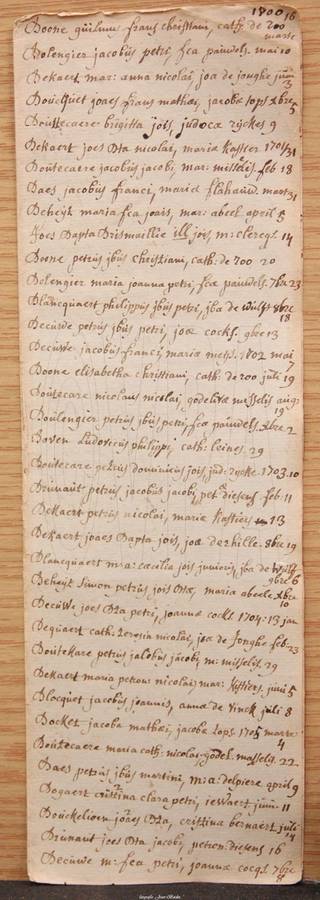 1700 16
Boone guilme frans christiani, cath: de roo
marte
Bolengier jacobus petri, fca pauwels. mai 10
Bekaert mar: anna nicolai, joa de jonghe juni
3
Boucquet joaes frans mathei, jacoba tops xbre 5
Bouttecaere brigitta jois, judoca ryckes 9
Bekaert joes Bta nicolai, maria Kastier 1701 31
Boutecaere jacobus jacobi, mar: misselis. feb 18
Baes jacobus franci, marie flahauw. mart 31
Beheyt maria fca joais, mar: abeel april 5
Joes Bapta Brismaillie ill jois, m: clercqs 14
Boone petrus jbus christiani, cath: de roo 20
Bolengier maria joanna petri, fca pauwels. 7bre 23
Blancquaert philippus jbus petri, jba de wulf 8bre
18
Becuwe petrus jbus petri, joae cocks. 9bre 13
Becuwe jacobus franci, maria mess. 1702 mai
7
Boone elisabetha christiani, cath: de roo juli 19
Boutecare nicolaus nicolai, godeliva misselis aug:
19
Boulengier petrus jbus petri, fca pauwels. xbre 2
Baven Ludovicus philippi, cath: leines. 29
Boutecare petrus dominicus jois, jud: rycke. 1703. 10
Brunaut petrus jacobus jacobi, pet: diesens feb: 11
Bekaert petrus nicolai, maria Kastiers 13
Bekaert joaes Bapta jois, joa: de rhille. 8bre 19
Blancquaert m:a: caecilia jois junioris, jba de wulf
9bre 6
Beheyt Simon petrus jois Btae, maria abeele xbre
10
Becuwe joes Bta petri, joanna cocks 1704. 13 jan
Bequaert cath: Teresia nicolai, joa de Jonghe feb. 23
Boutekare petrus jacobus jacobi, m: misselis. 29
Bekaert maria petron: nicolai, mar: Kastiers. juni 5
Blocquet jacobus joannis, anna de vinck juli 8
Bocket jacoba mathei, jacoba tops 1705 marte
4
Boutecaere maria cath: nicolai, godel: masselis. 22
Baes petrus jbus martini, m:a: delpiere april 9
Bogaert cristina clara petri, iewaert juni 11
Bouckelioen joaes Bta, cristina bernaert juli
14
Brunaut joes Bta jacobi, petron: diesens 16
Becuwe m: fca petri, joanna cocqs 7bre
8